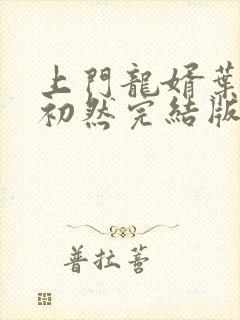 上門龍婿葉
初然完結版
普拉蒼